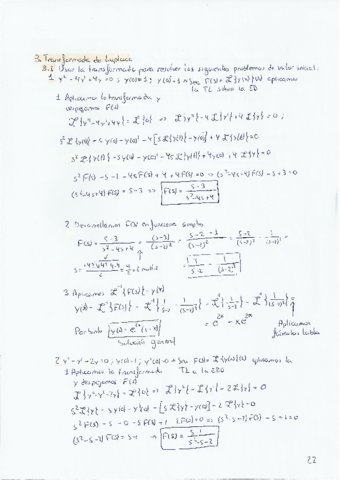 3. Transformada de Laplace
3.1 Usar la transformada para resolver los siguientes problemas de valor inicial.
1 y'' - 4y' + 4y = 0 ; y(0)=1 ; y'(0)=1 Sea F(s) = L{y(x)}(s) aplicamos
la TL sobre la ED
1 Aplicamos la transformada y
despejamos F(s)
L{y''-4y'+4y} = L{0} => L{y''} - 4L{y'} + 4L{y} = 0 ;
s² L{y(x)} - s y(0) - y'(0) - 4[s L{y(x)} - y(0)] + 4 L{y(x)} = 0
s² L{y(x)} - s y(0) - y'(0) - 4s L{y(x)} + 4y(0) + 4 L{y} = 0
s² F(s) - s - 1 - 4s F(s) + 4 + 4F(s) = 0 → (s²-4s+4) F(s) - s + 3 = 0
(s²-4s+4) F(s) = s-3 => F(s) = s-3 / s²-4s+4
2 Descomponemos F(s) en funciones simples
F(s) = s-3 / s²-4s+4 = (s-3) / (s-2)² = s-2-1 / (s-2)² = s-2 / (s-2)² - 1 / (s-2)² =
= 1 / s-2 - 1 / (s-2)²
3 Aplicamos L⁻¹{F(s)} = y(x)
y(x) = L⁻¹{F(s)} = L⁻¹{1 / s-2 - 1 / (s-2)²} = L⁻¹{1 / s-2} - L⁻¹{1 / (s-2)²} =
= e²ˣ - xe²ˣ
Aplicamos
Por tanto y(x) = e²ˣ(1-x)
Solución general
2 y'' - y' - 2y = 0 ; y(0)=1 ; y'(0)=0 → Sea F(s) = L{y(x)}(s) aplicamos la
TL a la EDO
1 Aplicamos la transformada
y despejamos F(s)
L{y''-y'-2y} = L{0} => L{y''} - L{y'} - 2L{y} = 0
s² L{y} - s y(0) - y'(0) - [s L{y} - y(0)] - 2L{y} = 0
s² F(s) - s - 0 - s F(s) + 1 - 2F(s) = 0 → (s²-s-2) F(s) - s + 1 = 0
(s²-s-2) F(s) = s-1 → F(s) = s-1 / s²-s-2
22